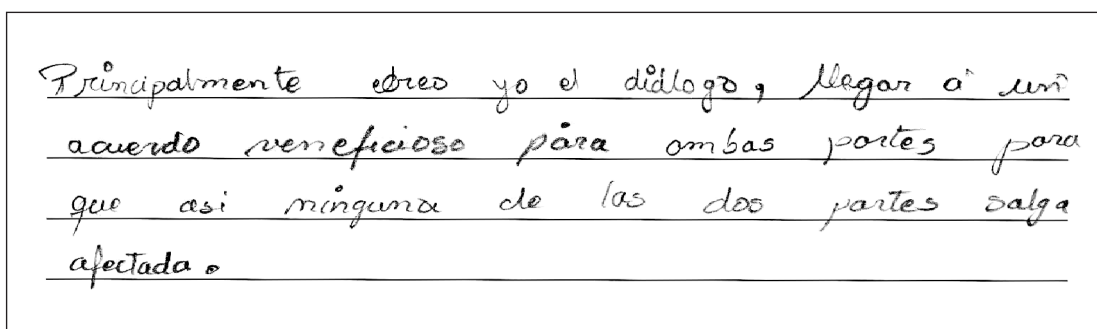 Principalmente creo yo el diálogo, llegar a un
acuerdo veneficioso para ambas partes para
que asi ninguna de las dos partes salga
afectada.